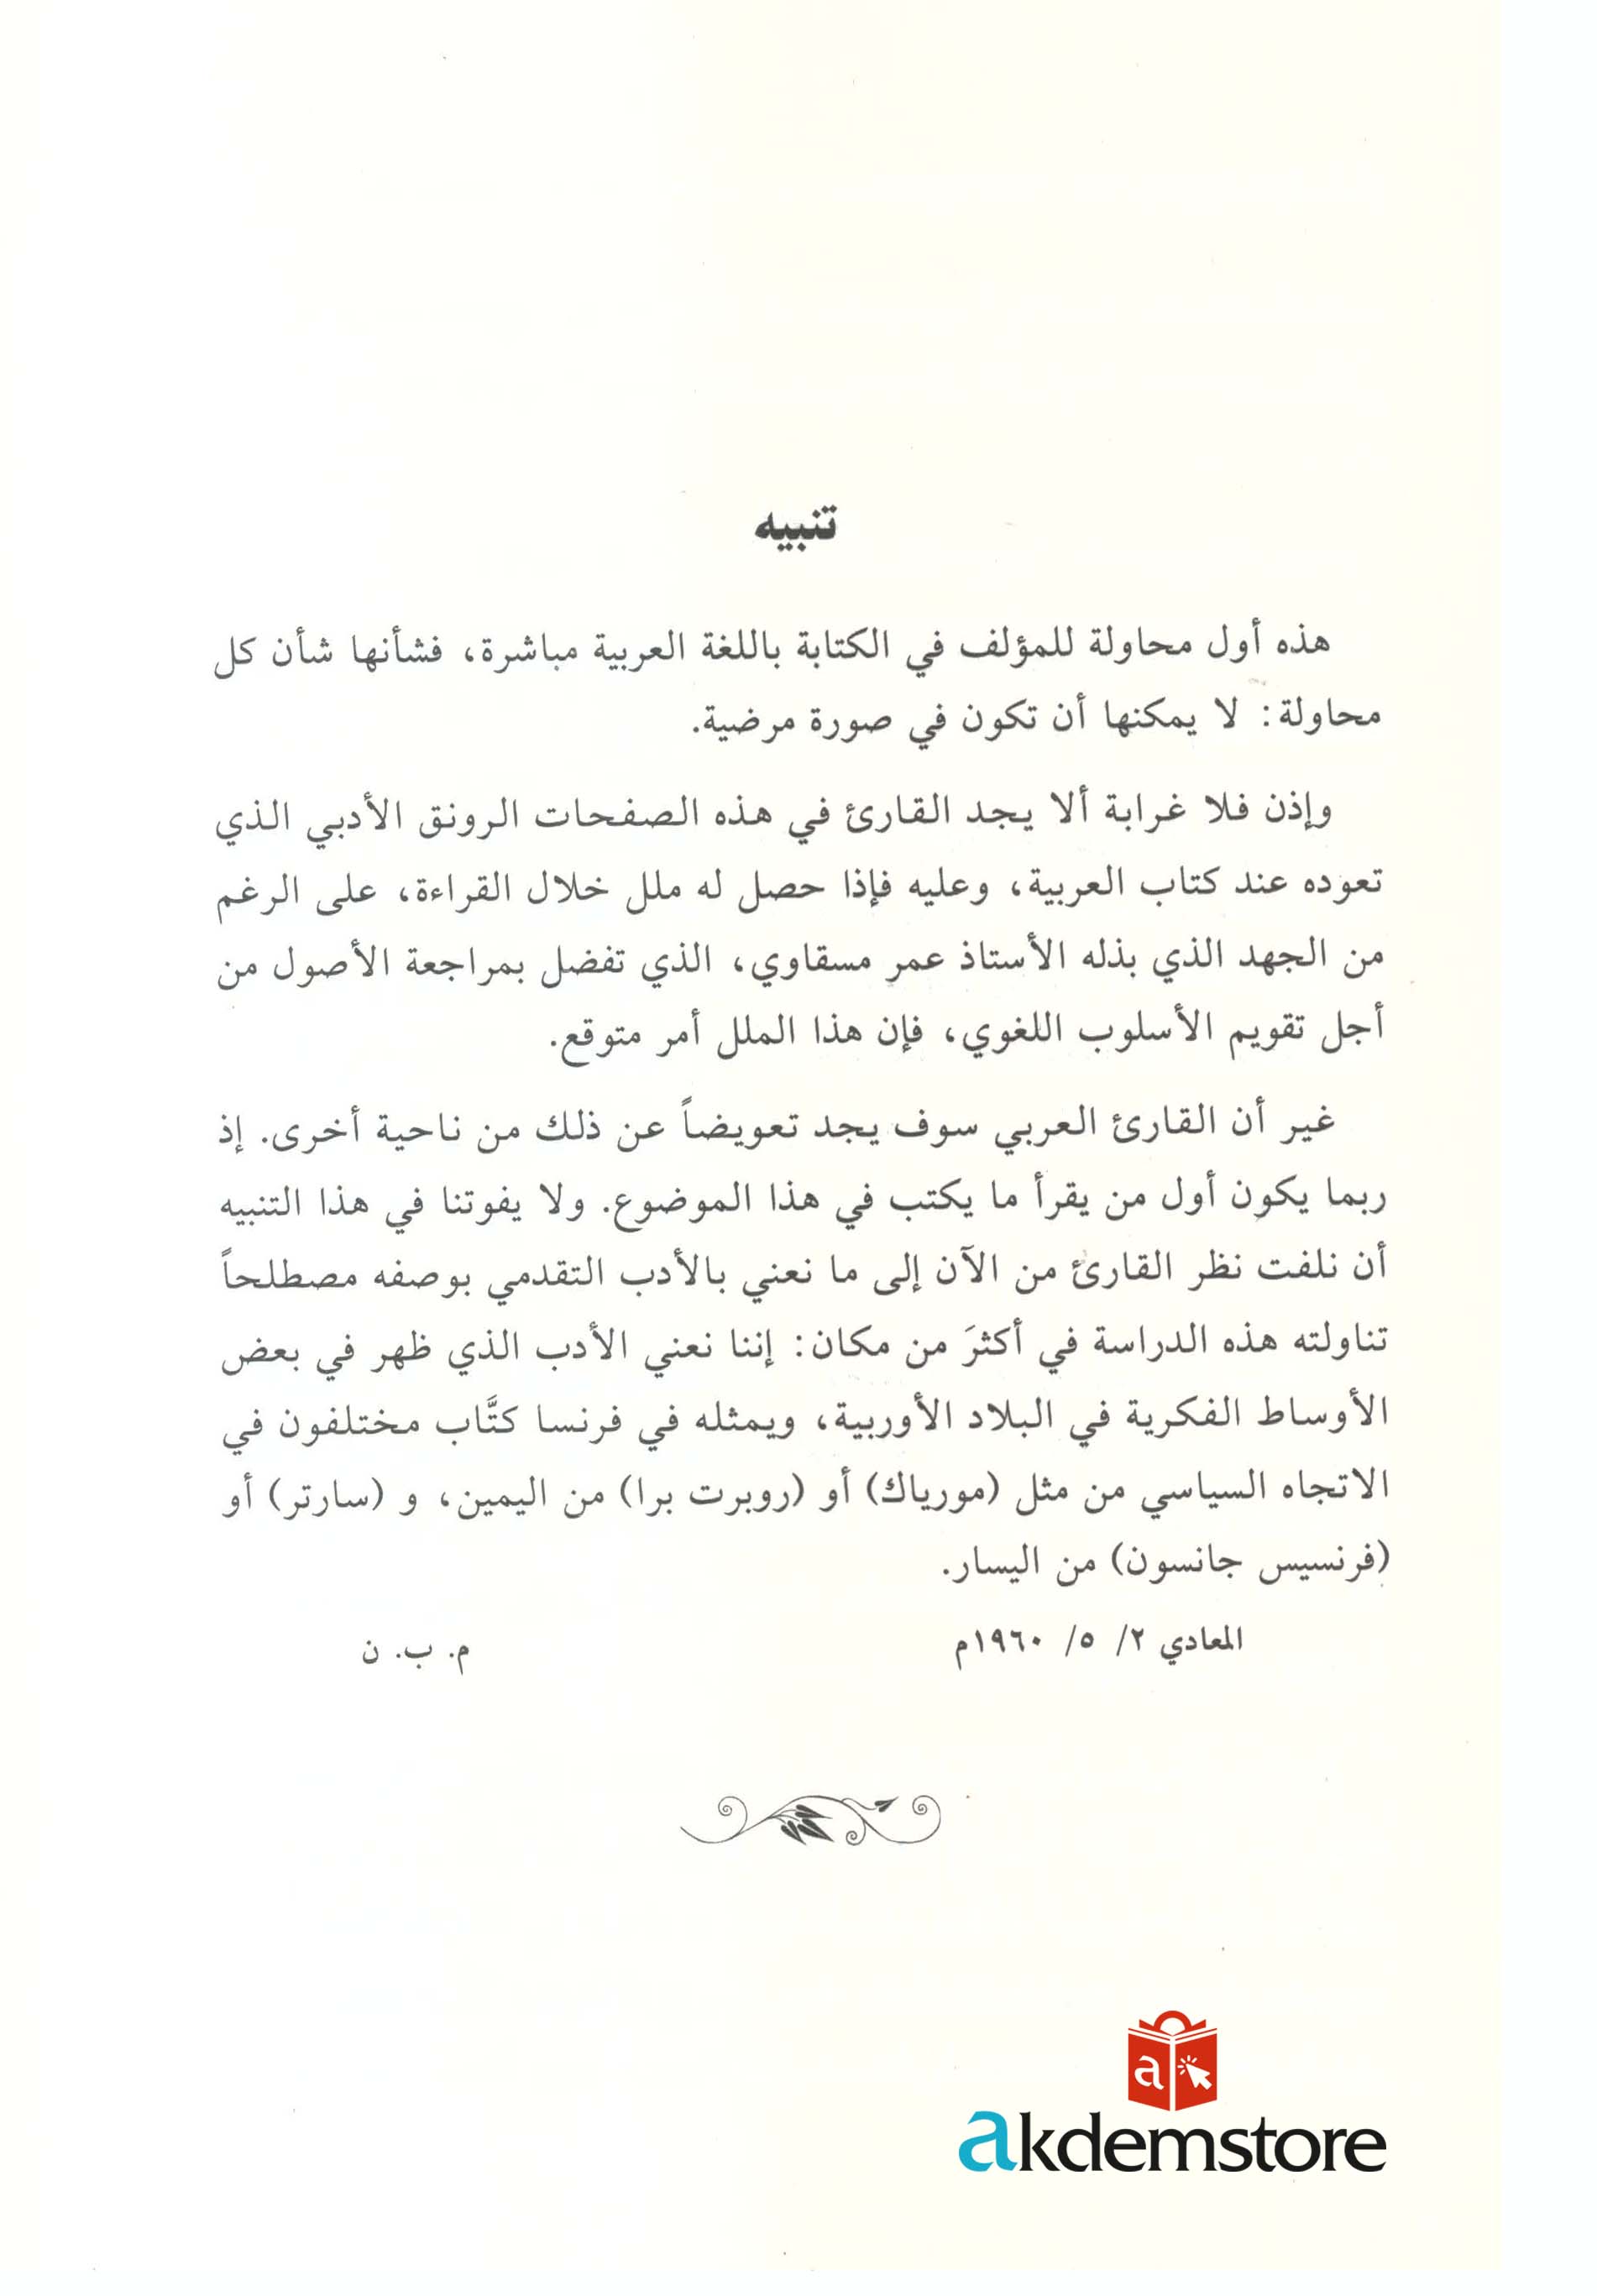 تنبيه
هذه أول محاولة للمؤلف في الكتابة باللغة العربية مباشرة، فشأنها شأن كل
محاولة: لا يمكنها أن تكون في صورة مرضية.
وإذن فلا غرابة ألا يجد القارئ في هذه الصفحات الرونق الأدبي الذي
تعوده عند كتاب العربية، وعليه فإذا حصل له ملل خلال القراءة، على الرغم
من الجهد الذي بذله الأستاذ عمر مسقاوي، الذي تفضل بمراجعة الأصول من
أجل تقويم الأسلوب اللغوي، فإن هذا الملل أمر متوقع.
غير أن القارئ العربي سوف يجد تعويضاً عن ذلك من ناحية أخرى. إذ
ربما يكون أول من يقرأ ما يكتب في هذا الموضوع. ولا يفوتنا في هذا التنبيه
أن نلفت نظر القارئ من الآن إلى ما نعني بالأدب التقدمي بوصفه مصطلحاً
تناولته هذه الدراسة في أكثرَ من مكان: إننا نعني الأدب الذي ظهر في بعض
الأوساط الفكرية في البلاد الأوربية، ويمثله في فرنسا كتَّاب مختلفون في
الاتجاه السياسي من مثل (مورياك) أو (روبرت برا) من اليمين، و (سارتر) أو
(فرنسيس جانسون) من اليسار.
المعادي ٢/ ٥/ ١٩٦٠م م. ب. ن
a
akdemstore